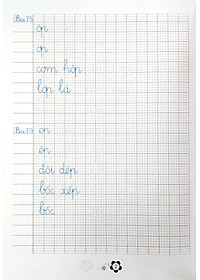 Bài 15 ôp
ơn
cơm hộp
lợn lá
Bài 19 en
ên
đôi dép
bốc xếp
bốc